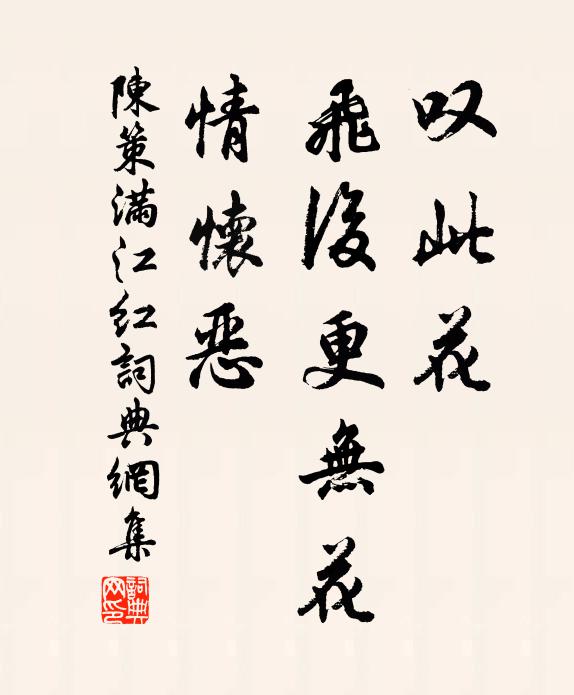 叹此花
飛後更無花
情懷惡
陳策滿江紅詞典網集
詞典网印